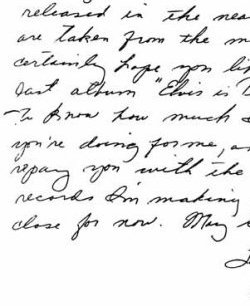 released in the nea
are taken from the m
certainly hope you li
last album "Elvis is
To know how much
you're doing for me, a
repay you with the
records I'm making
close for now. May